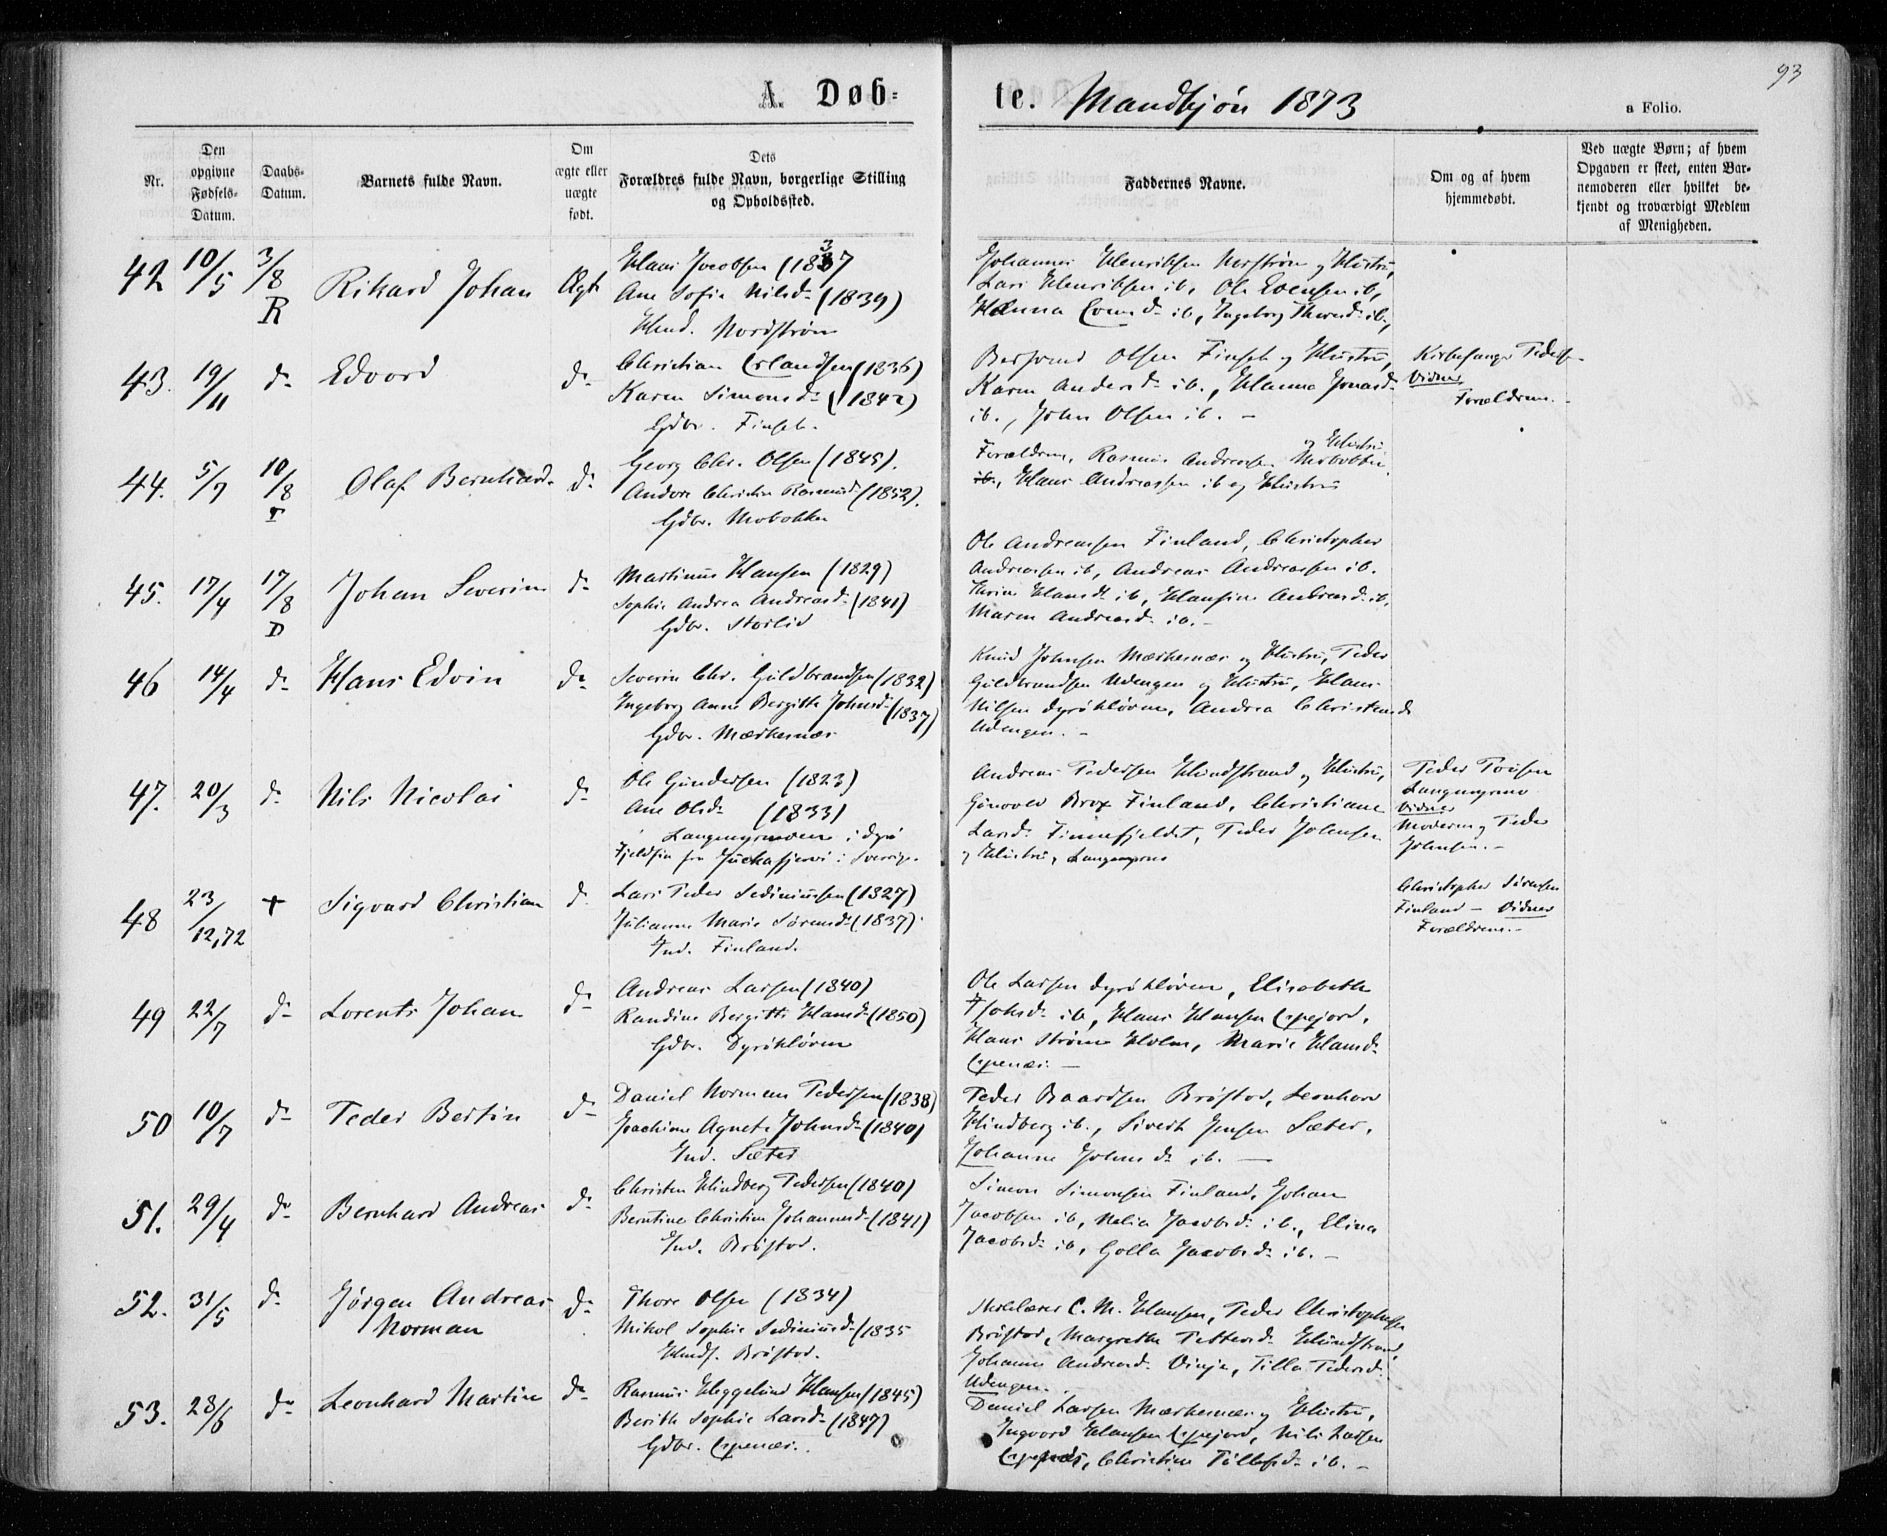 93
A Døb-
te. Mandkjøn 1873
a Folio.
Nr.
Den opgivne Fødsels-Datum.
Daabs-Datum.
Barnets fulde Navn.
Om ægte eller uægte født.
Dets Forældres fulde Navn, borgerlige Stilling og Opholdssted.
Faddernes Navne.
Om og af hvem hjemmedøbt.
Ved uægte Børn; af hvem Opgaven er skeet, enten Barnemoderen eller hvilket bekjendt og troværdigt Medlem af Menigheden.
42 10/5 3/8 R Rikard Johan Ægte
Hans Jacobsen (1837
Ane Sofie Nilsd. (1839)
Nordstrøm
Johannes Henriksen og Hustru,
Lars Henriksen ib, Ole Evensen ib,
Hanna ib, Ingeborg ib,
43. 19/11 do Edvard do
Christian Erlandsen (1836)
Karen Simonsd. (1842)
Gdbr. Finset.
Olsen Finset og Hustru,
Karen Andersd. ib., Hanna Jonasd.
ib., John Olsen ib. -
Kirkesanger Peders
Vidner
Forældrene. -
44. 5/7 10/8 T Olaf Bernhard do
Georg Chr. Olsen (1845).
Christine Rasmusd. (1852).
Gdbr. Mobakken
Forældrene, Rasmus Andreassen Mobakken og Hustru
ib, Hans Andreassen ib og Hustru
45. 17/4 17/8 D Johan Severin do
Martinus Hansen (1829)
Sophie Andrea Andreasd. (1841)
Gdbr. Storlid
Ole Andreassen Finland, Christopher
Andreassen ib, Andreas Andreassen ib.
Hansd. ib, Hansine Andreasd. ib,
Maren Andreasd. ib. -
46 14/4 do Hans Edvin do
Severin Chr. Guldbrandsen (1832)
Ingeborg Anne Bergitte Johnsd. (1837)
Gdbr. Mærkesnæs
Knud Johnsen Mærkesnæs og Hustru, Peder
Guldbrandsen Udengen og Hustru, Hans
Nilsen Dyrökløven, Andrea Christensd.
Udengen. -
47. 20/3 do Nils Nicolai do
Ole Gundersen (1823)
Ane Olsd. (1833)
Langemyrmoen i Dyrö
fra Juckasjervi i Sverige.
Andreas Pedersen Hundstrand og Hustru,
Brox Finland, Christiane
Larsd. Finnefjeldet, Peder Johnsen
og Hustru, Langemyrmo
Peder
Langemyrmo
Vidner
Moderen og Peder
Johnsen. -
48 23/12,72 + Sigvard Christian do
Lars Peder Sediniussen (1827)
Julianne Marie Sørensd. (1837).
Ind. Finland.
Christopher Sørensen
Finland - Vidner
Forældrene. -
49 22/7 do Lorents Johan do
Andreas Larsen (1840)
Randine Bergitte Hansd. (1850)
Gdbr. Dyrökløven
Ole Larsen Dyrökløven, Elisabeth
ib, Hans Hansen Espejord,
Hans Strøm Holm, Marie Hansd.
Espenæs. -
50 10/7 do Peder Bertin do
Daniel Norman Pedersen (1838)
Joachime Agnete Johnsd. (1840)
Ind. Sæter
Peder Baardsen Brøstad, Leonhard
Hindberg ib., Sivert Jensen Sæter,
Johanne Johnsd. ib. -
51. 29/4 do Bernhard Andreas do
Christen Hindberg Pedersen (1840)
Berntine Christine Johannesd. (1841)
Ind. Brøstad.
Simon Simonsen Finland, Johan
Jacobsen ib, Jacobsd. ib., Elina
Jacobsd. ib, Golla Jacobsd. ib. -
52. 31/5 do Jørgen Andreas Norman do
Thore Olsen (1834)
Nikol. Sophie Sediniusd. (1835
Brøstad.
C. M. Hansen, Peder Christophersen
Brøstad, Margrethe Pettersd. Hundstrand,
Johanne Andreasd. Pedersd.
Udengen.
53. 28/6 do Leonhard Martin do
Rasmus Heggelund Hansen (1845)
Berith Sophie Larsd. (1847)
Gdbr. Espenæs.
Daniel Larsen Mærkesnæs og Hustru,
Ingvard Hansen Espejord, Nils Larsen
Espenæs, Christine ib. -